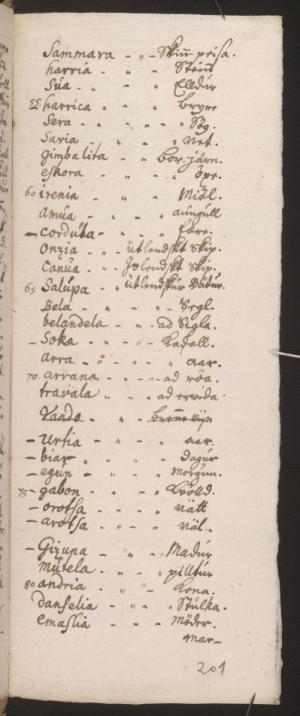 Sammara - „ - Skinn peisa.
harria - „ - Steinn
Süa - „ - Elldur
55 harrica - „ - bryne
Sera - „ - Sög.
Saria - „ - Net.
Gimbalita - „ - bor. járn.
eskora - „ - öxe.
60 irenia - „ - Miöl.
amua - „ - aungull
– corduta - „ - fære.
Onzia - „ - Utlendskt Skip.
Canua - „ - Islendskt Skip.
65 Salupa - „ - utlendskur Bátur.
Bela - „ - Segl.
belandela - „ - ad Sigla.
– Soka - „ - Kadall.
arra - „ - aar.
70 arrana - „ - ad róa.
travala - „ - ad ervida.
Xanda - „ -
– Urtia - „ - aar.
– biar - „ - dagur
– egun - „ - morgun.
75 – gabon - „ - kvölld.
– orotsa - „ - nätt
– arotsa - „ - näl.
– Gizuna - „ - Madur
mutela - „ - pilltur
80 andria - „ - kona.
danselia - „ - Stülka.
emaslia - „ - Möder.
mar–
201